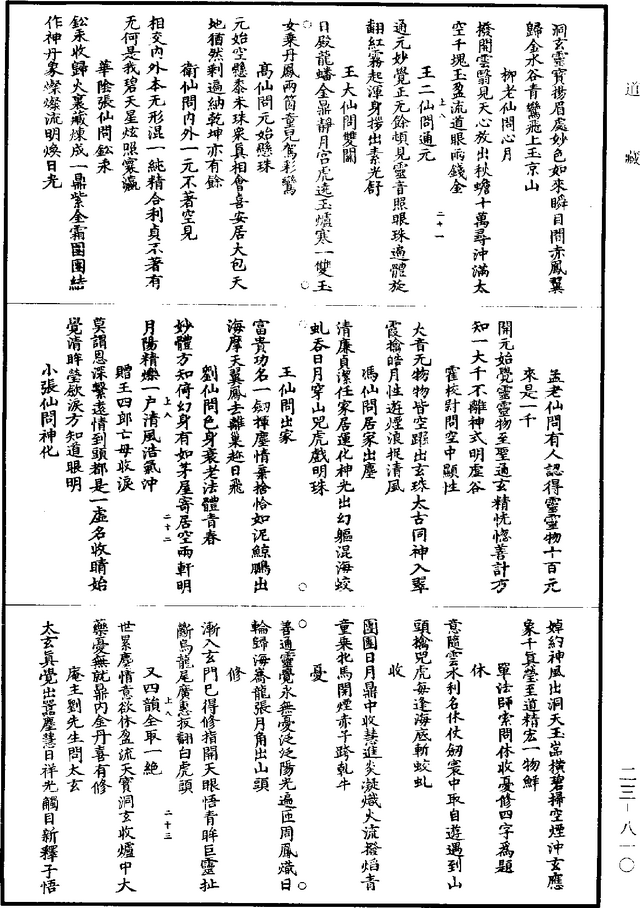 道藏
洞玄靈寶揚眉處妙色如來瞬目間赤鳳翼
歸金水谷青鸞飛上玉京山
柳老仙問心月
撥開雲翳見天心放出秋蟾十萬尋沖滿太
空千塊玉盈流道眼兩錢金
王二仙問通元
通元妙覺正元餘頓見靈音照眼珠遍體旋
翻紅霧起渾身撈出素光舒
王大仙問雙關
日殿龍蟠金鼎靜月宮虎遶玉爐寒一雙玉
女乘丹鳳兩箇童兒駕彩鸞
高仙問元始懸珠
元始空懸黍米珠眾真相會喜安居大包天
地猶然剩遍納乾坤亦有餘
衛仙問內外一元不著空見
相交內外本无形混一純精合利貞不著有
无何是我碧天星炫照寰瀛
華陰張仙問鈆汞
鈆汞收歸火裏藏煉成一鼎紫金霜團團結
作神丹象燦燦流明煥日光
孟老仙問有人認得靈靈物十百元
來是一千
開元始覺靈靈物至聖通玄精恍惚善計方
知一大千不離神式明虛谷
霍核對問空中顯性
大音无物物皆空躍出玄珠太古同神入翠
霞擒皓月性遊煙浪捉清風
馮仙問居家出塵
清廉貞潔任家居蓮化神光出幻軀混海蛟
虬吞日月穿山兕虎戲明珠
王仙問出家
富貴功名一劒揮塵情棄捨恰如泥鯨鵬出
海摩天翼鳳去離巢趂日飛
劉仙問色身衰老法體青春
妙體方知倚幻身有如茅屋寄居空雨軒明
月陽精爍一戶清風浩氣沖
贈王四郎亡母收淚
莫謂恩深繫遠情到頭都是一虛名收睛始
覺清眸瑩歛淚方知道眼明
小張仙問神化
婥約神風出洞天玉嵓橫碧掃空煙沖玄應
象千真瑩至道精宏一物鮮
單法師索問休收憂修四字為題
休
意隨雲水利名休仗劒寰中取自遊遇到山
頭擒兕虎每逢海底斬蛟虬
收
團團日月鼎中收慧進炎凝熾火流撥焰青
童乘牝馬開煙赤子跨乾牛
憂
善通靈覺永無憂泛泛陽光遍匝周鳳熾日
輪歸海嶠龍張月角出山頭
修
漸入玄門巳得修指開天眼悟青眸巨靈扯
斷烏龍尾廣惠扳翻白虎頭
又四韻全取一絶
世累塵情意欲休盈流天寶洞玄收爐中大
藥憂無就鼎內金丹喜有修
庵主劉先生問太玄
太玄真覺出嚣塵慧日祥光觸目新釋子悟
上八
二十一
上八
二十二
上八
二十三
二三－八一〇